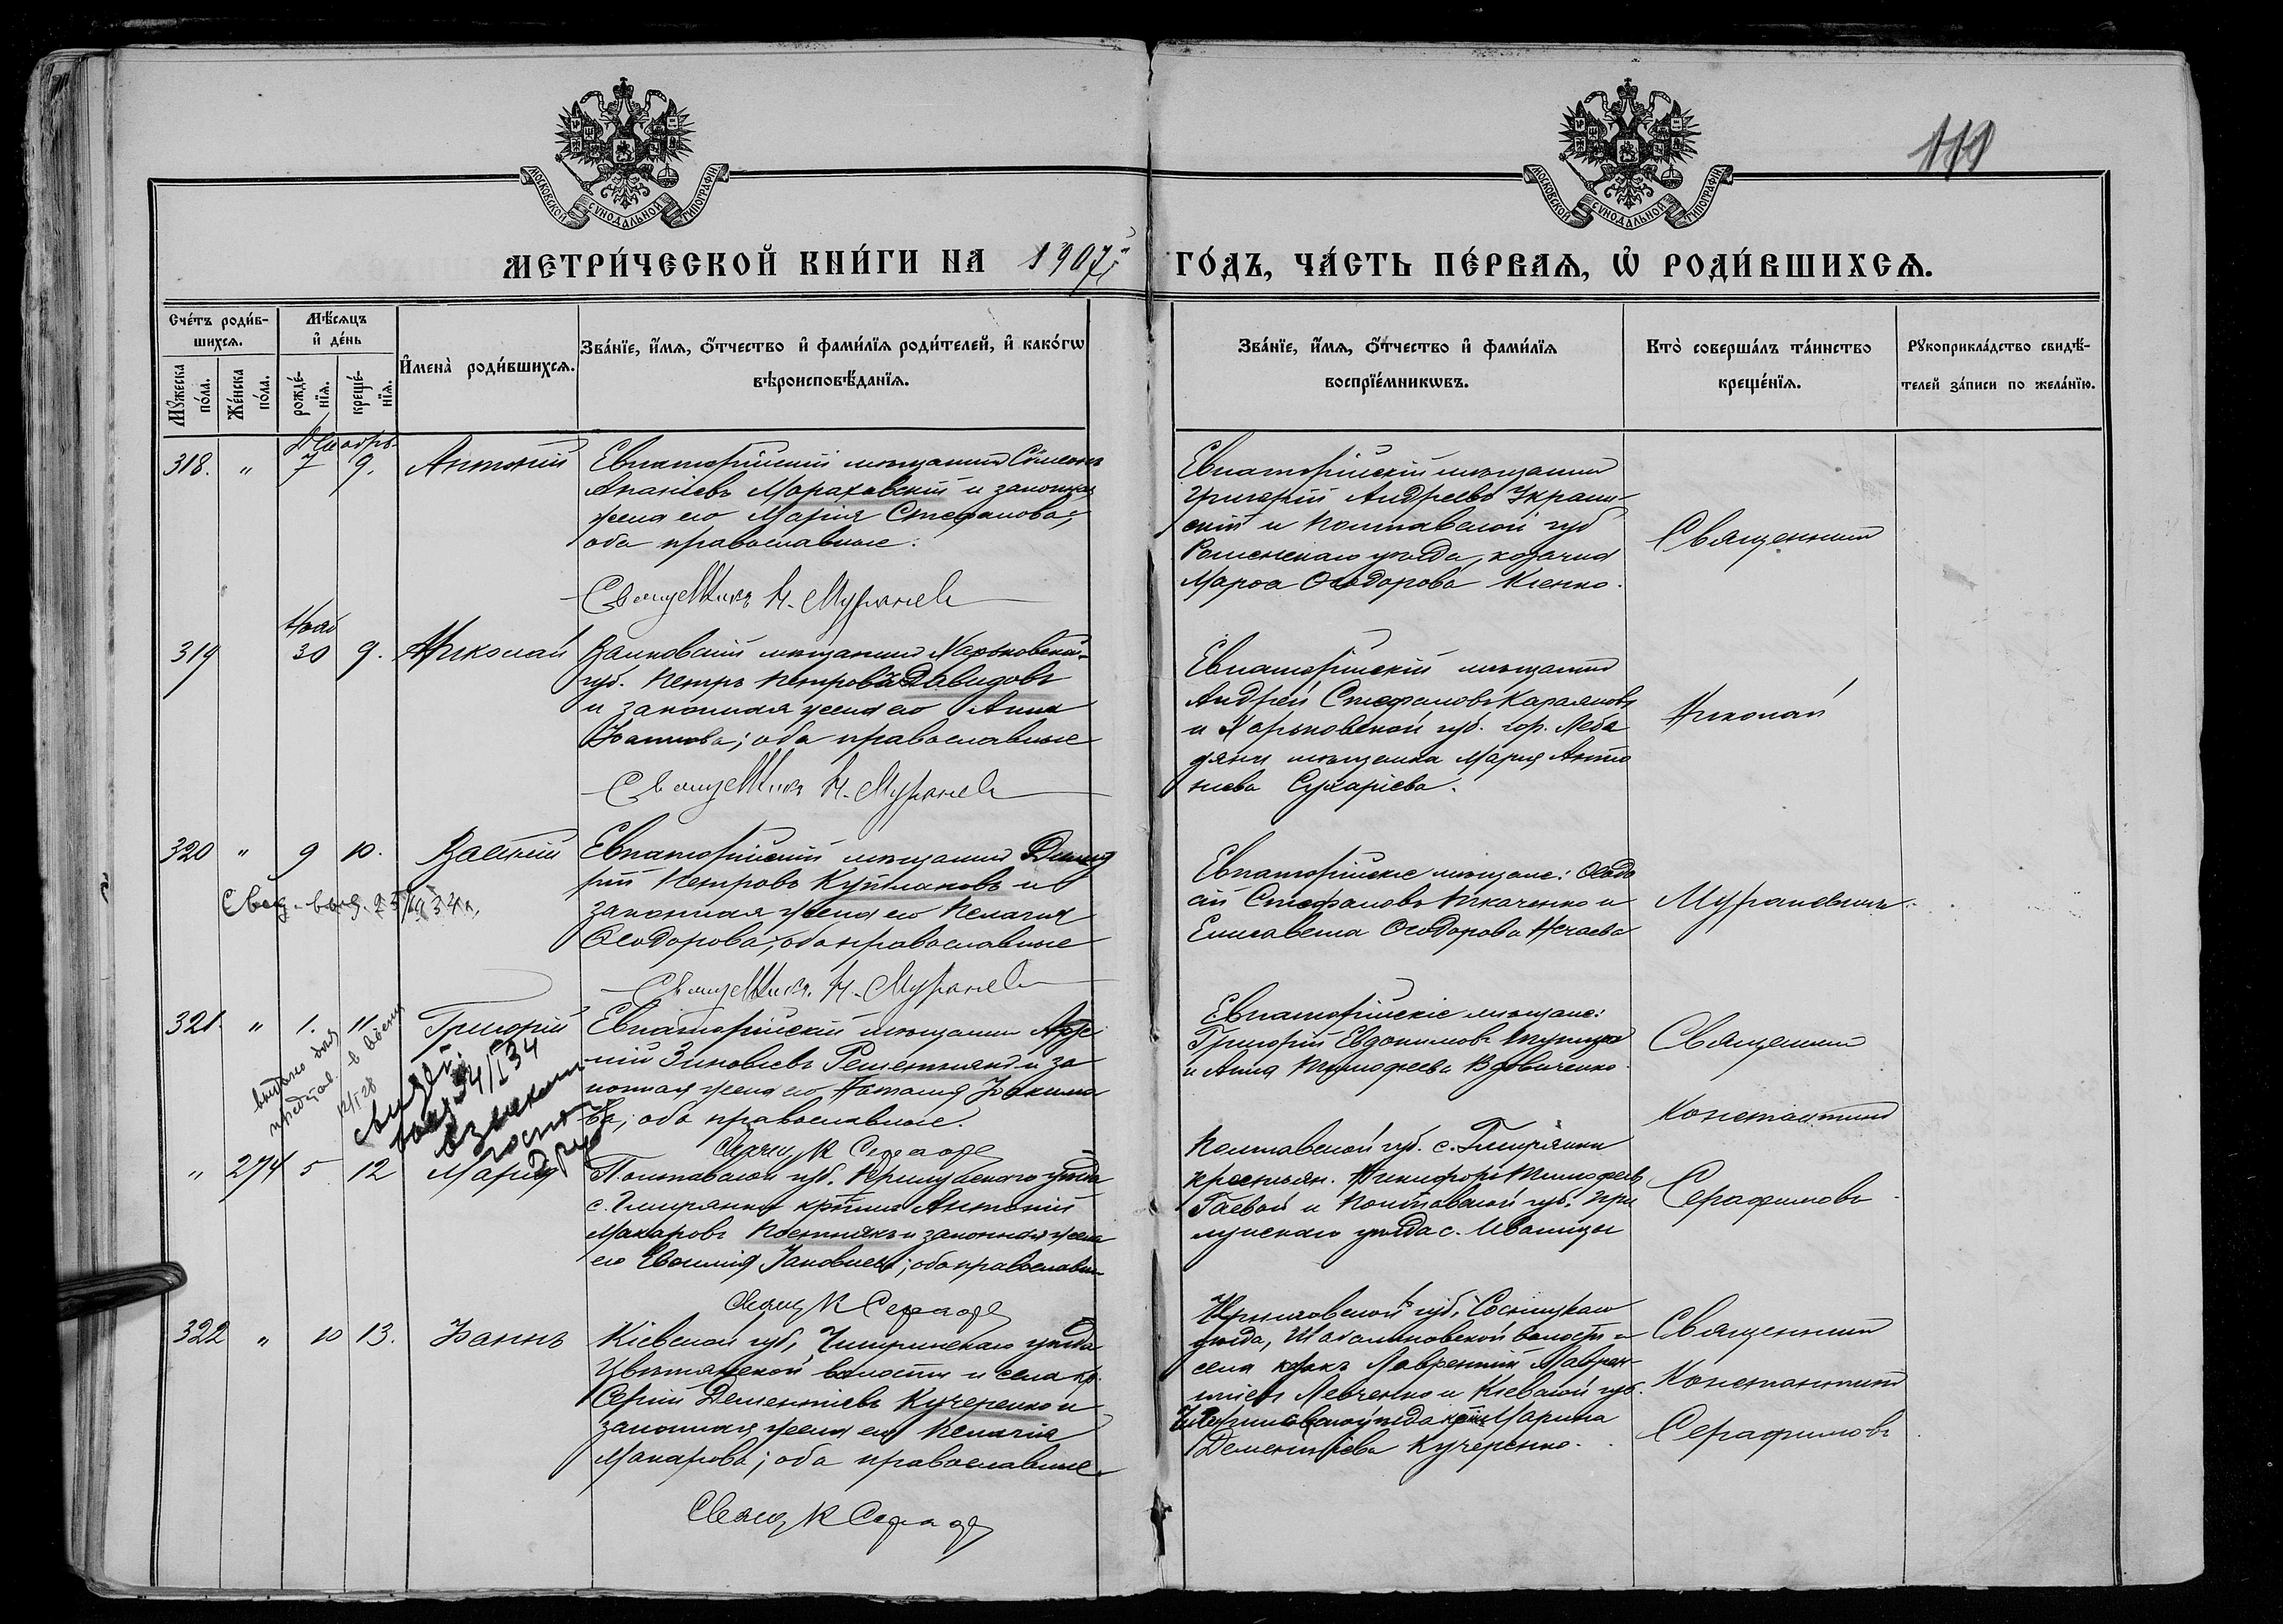 111
МОСКОВСКОЙ СѴНОДАЛЬНОЙ ТИПОГРАФІИ
МОСКОВСКОЙ СѴНОДАЛЬНОЙ ТИПОГРАФІИ
МЕТРИ́ЧЕСКОЙ КНИ́ГИ НА 1907
ГО́ДЪ, ЧА́СТЬ ПЕ́РВАѦ, Ѡ҆ РОДИ́ВШИХСѦ.
Сче́тъ роди́в-
шихсѧ.
Мѣ́сѧцъ
и҆ де́нь
И҆мена̀ роди́вшихсѧ.
Зва́нїе, и҆́мѧ, ѻ҆́тчество и҆ фами́лїѧ роди́телей, и҆ како́гѡ
вѣроисповѣ́данїѧ.
Мꙋ́жеска
по́ла.
Же́нска
по́ла.
рожде́-
нїѧ.
креще́-
нїѧ.
Зва́нїе, и҆́мѧ, ѻ҆́тчество и҆ фами́лїѧ
воспрїе́мникѡвъ.
Кто̀ соверша́лъ та́инство
креще́нїѧ.
Рꙋкоприкла́дство свидѣ́-
телей за́писи по жела́нїю.
Декабрь
318. " 7 9. Антоній
Евпаторійскій мѣщанинъ Симеонъ
Ананіевъ Мараховскій и законная
жена его Марія Стефанова;
оба православные.
Священникъ Н. Муранев
Евпаторійскій мѣщанинъ
Григорій Андреевъ Украин-
скій и Полтавской губ
Роменскаго уѣзда, козачка
Марѳа Ѳеодорова Кіенко.
Священникъ
Нояб
319 30 9. Николай
Валковскій мѣщанинъ Харьковской
губ. Петръ Петровъ Давидовъ
и законная жена его Анна
Іоаннова; оба православные
Священникъ Н. Муранев
Евпаторійскій мѣщанинъ
Андрей Стефановъ Караяновъ
и Харьковской губ. гор. Лебе
дяни мѣщанка Марія Анто
ніева Сухаріева.
Николай
320 " 9 10. Василій
Свид. выд.
Евпаторійскій мѣщанинъ Димит
рій Петровъ Куплановъ и
законная жена его Пелагія
Ѳеодорова; оба православные
Священникъ Н. Муранев
Евпаторійскіе мѣщане: Ѳеодо
сій Стефановъ Ткаченко и
Елисавета Ѳеодорова Нечаева
Мураневичъ.
321. " 1. 11 Григорій
12/I 28
34/I 34
взыскан
руб
Евпаторійскій мѣщанинъ Арсе
ній Зиновіевъ Решетнякъ и за
конная жена его Наталія Іоакимо
ва; оба православные.
Свящ К Сераф
Евпаторійскіе мѣщане:
Григорій Евдокимовъ
и Анна Тимоѳеева Вдовиченко.
Священникъ
Константинъ
Серафимовъ
" 274 5 12 Марія
Полтавской губ. Прилукскаго уѣзда
с. Гмирянки кр-нинъ Антоній
Макаровъ Постникъ и законная жена
его Евфимія Іаковлева; оба православн
Свящ К Сераф
Полтавской губ. с. Гмирянки
крестьян. Никифоръ Тимоѳеев
Гаевой и Полтавской губ. При
лукскаго уѣзда с. Иваницы
322 " 10 13. Іоаннъ
Кіевской губ, Чигиринскаго уѣзда
Цвѣтянской волости и села кр.
Сергій Дементіевъ Кучеренко и
законная жена его Пелагія
Макарова; оба православные.
Свящ К Сераф
Черниговской губ. Сосницкаго
уѣзда, Шабалиновской волости и
села козакъ Лаврентій Лаврен-
тіевъ Левченко и Кіевской губ.
Чигиринскаго уѣзда Марина
Дементіева Кучеренко.
Священникъ
Константинъ
Серафимовъ